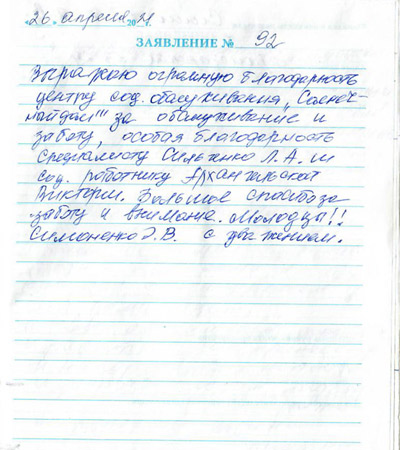 «26» апреля 2021 г.
ЗАЯВЛЕНИЕ № 92
Выражаю огромную благодарность
центру соц. обслуживания „Солнеч-
ный дом" за обслуживание и
заботу, особая благодарность
специалисту Силькино Л.А. и
соц. работнику Архангельской
Виктории. Большое спасибо за
заботу и внимание. Молодцы!!
Симоненко Э.В. с уважением.